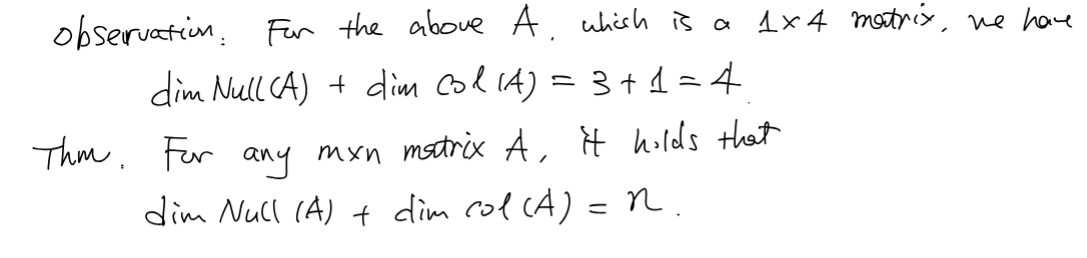 observation: For the above A, which is a 1×4 matrix, we have
dim Null(A) + dim Col(A) = 3+1=4
Thm. For any m×n matrix A, it holds that
dim Null (A) + dim col (A) = n.